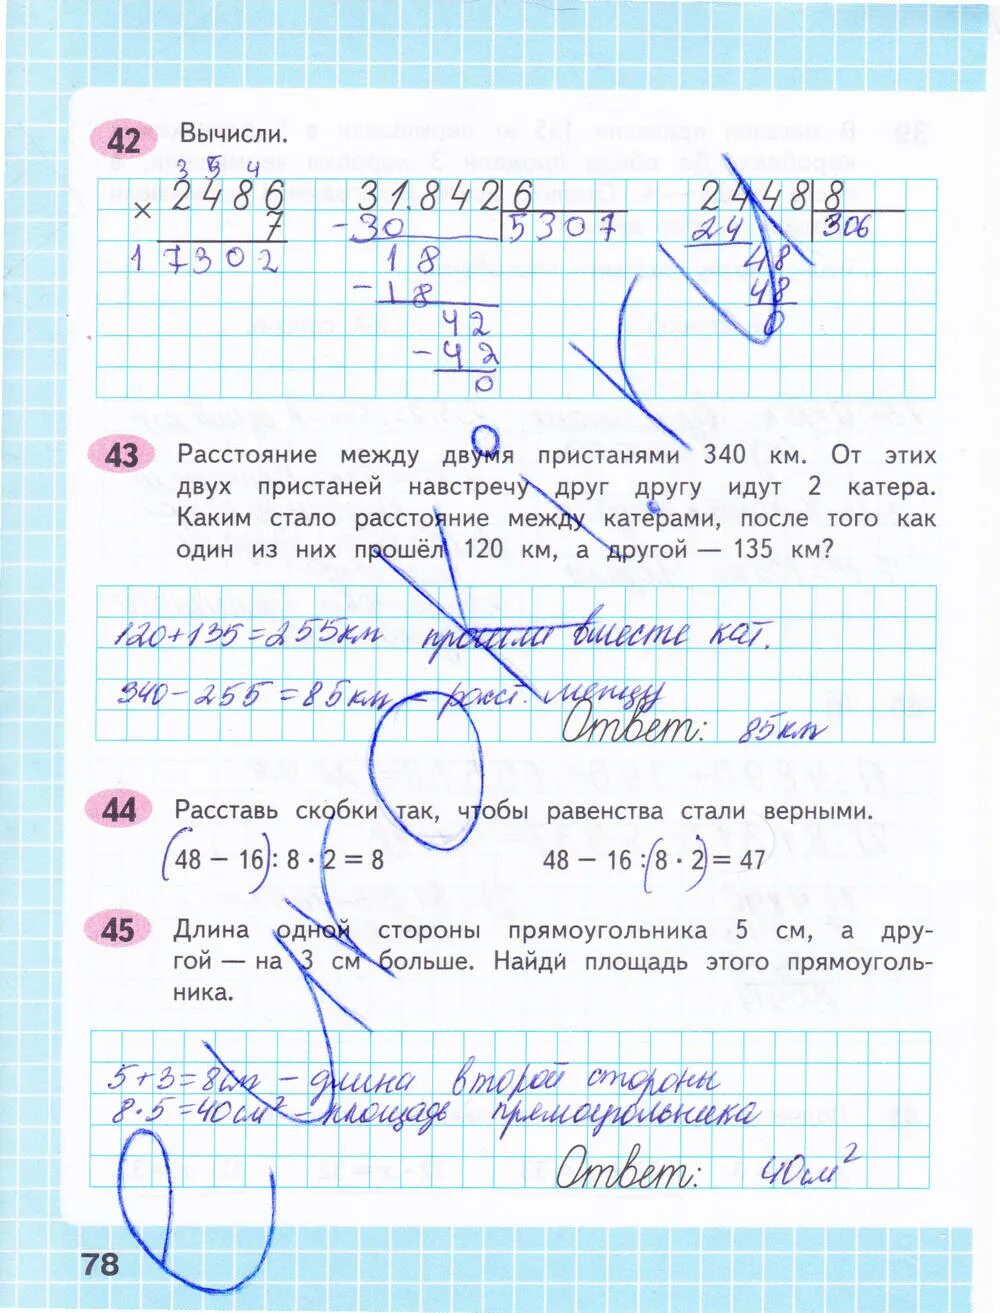 42 Вычисли.
3 5 4
× 2486
7
17302
31.842 6
- 30 5307
18
- 18
42
- 42
0
2448 8
24 306
48
48
0
43 Расстояние между двумя пристанями 340 км. От этих
двух пристаней навстречу друг другу идут 2 катера.
Каким стало расстояние между катерами, после того как
один из них прошёл 120 км, а другой — 135 км?
120+135=255км прошли вместе кат.
340-255=85км - расст. между
Ответ: 85км
44 Расставь скобки так, чтобы равенства стали верными.
(48 – 16) : 8 · 2 = 8
48 – 16 : (8 · 2) = 47
45 Длина одной стороны прямоугольника 5 см, а дру-
гой — на 3 см больше. Найди площадь этого прямоуголь-
ника.
5+3=8см - длина второй стороны
8·5=40см² - площадь прямоугольника
Ответ: 40см²
78